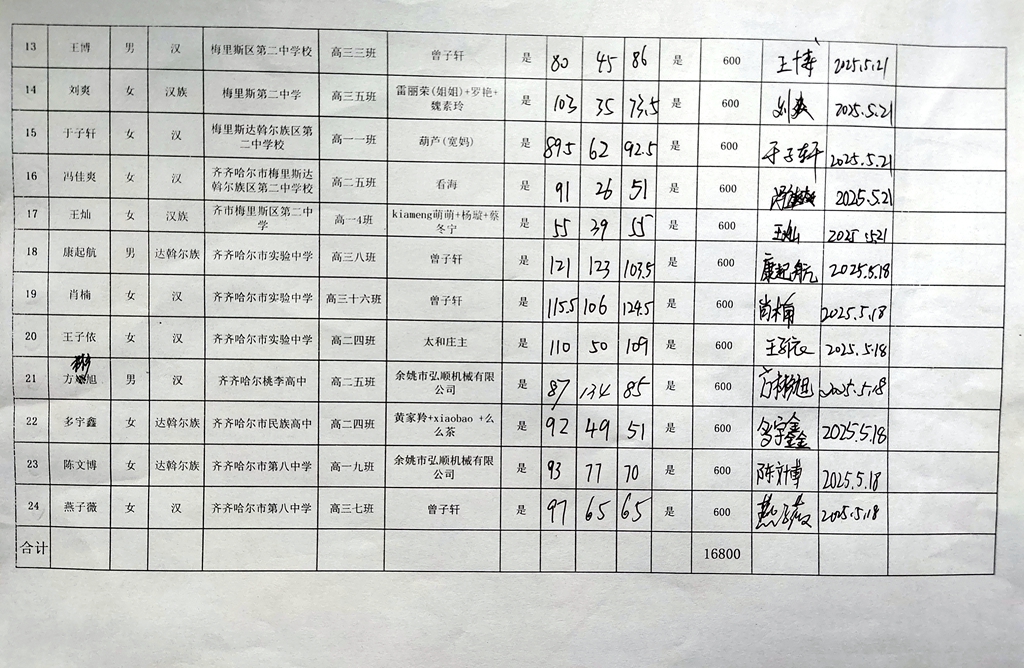 13 王博 男 汉 梅里斯区第二中学校 高三三班 曾子轩 是 80 45 86 是 600 王博 2025.5.21
14 刘爽 女 汉族 梅里斯第二中学 高三五班 雷丽荣(姐姐)+罗艳+
魏素玲 是 103 35 73.5 是 600 刘爽 2025.5.21
15 于子轩 女 汉 梅里斯达斡尔族区第
二中学校 高一一班 葫芦(宽妈) 是 89.5 62 92.5 是 600 于子轩 2025.5.21
16 冯佳爽 女 汉 齐齐哈尔市梅里斯达
斡尔族区第二中学校 高二五班 看海 是 91 26 51 是 600 2025.5.21
17 王灿 女 汉族 齐市梅里斯区第二中
学 高一4班 kiameng萌萌+杨璇+蔡
冬宁 是 55 39 55 是 600 王灿 2025.5.21
18 康起航 男 达斡尔族 齐齐哈尔市实验中学 高三八班 曾子轩 是 121 123 103.5 是 600 康起航 2025.5.18
19 肖楠 女 汉 齐齐哈尔市实验中学 高三十六班 曾子轩 是 115.5 106 124.5 是 600 肖楠 2025.5.18
20 王子依 女 汉 齐齐哈尔市实验中学 高二四班 太和庄主 是 110 50 109 是 600 王子依 2025.5.18
21 方 旭 男 汉 齐齐哈尔桃李高中 高二五班 余姚市弘顺机械有限
公司 是 87 134 85 是 600 2025.5.18
22 多宇鑫 女 达斡尔族 齐齐哈尔市民族高中 高二四班 黄家羚+xiaobao +么
么茶 是 92 49 51 是 600 多宇鑫 2025.5.18
23 陈文博 女 达斡尔族 齐齐哈尔市第八中学 高一九班 余姚市弘顺机械有限
公司 是 93 77 70 是 600 陈文博 2025.5.18
24 燕子薇 女 汉 齐齐哈尔市第八中学 高三七班 曾子轩 是 97 65 65 是 600 燕子薇 2025.5.18
合计 16800